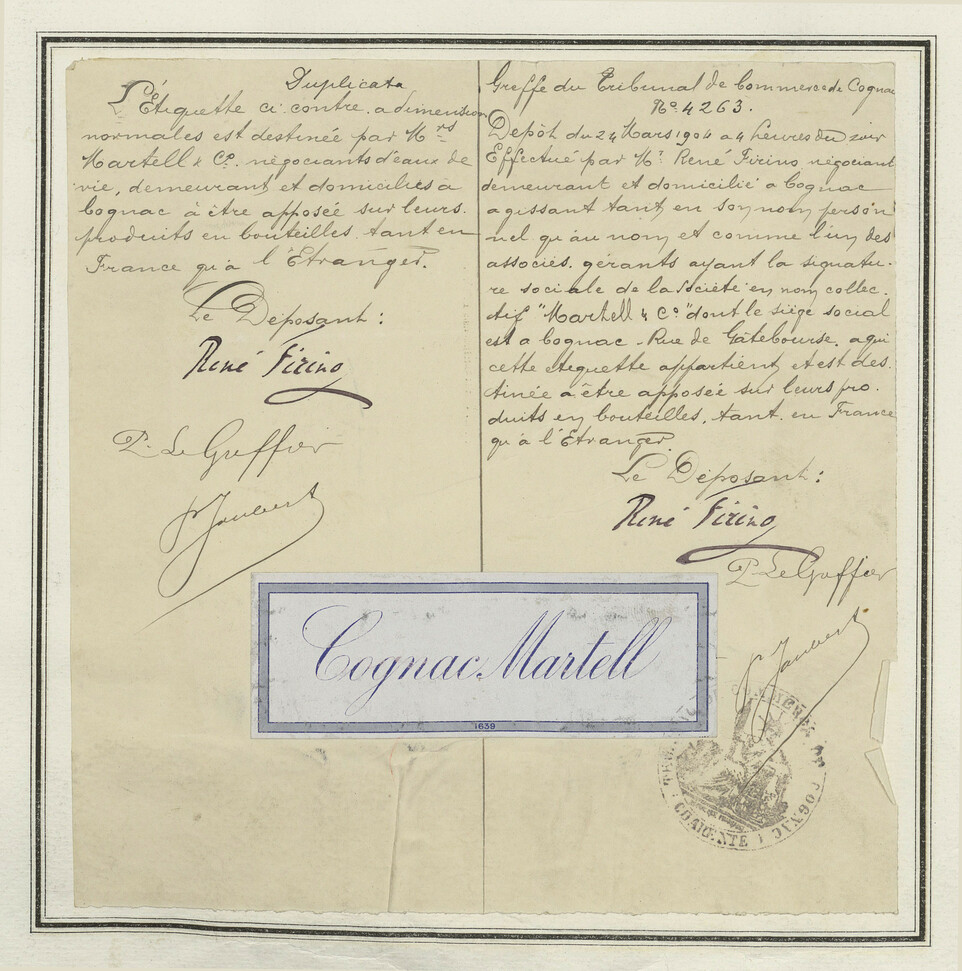 Duplicata
L'Étiquette ci contre, a dimension
normales est destinée par Mrs
Martell & Co. négociants d'eaux de
vie, demeurant et domiciliés a
Cognac à être apposée sur leurs
produits en bouteilles, tant en
France qu'à l'Étranger.
Le Déposant :
René Firino
P. Le Greffier
P Jaubert
Greffe du Tribunal de Commerce de Cognac
No. 4263.
Depôt du 24 Mars 1904 a 4 heures du soir
Effectué par Mr René Firino négociant
demeurant et domicilié a Cognac
agissant tant en son nom person
nel qu'au nom et comme l'un des
associés. gérants ayant la signatu-
re sociale de la Société en nom collec-
tif "Martell & Co" dont le siège social
est a Cognac - Rue de Gâtebourse, a qui
cette etiquette appartient et est des-
tinée a être apposée sur leurs pro-
duits en bouteilles, tant en France
qu'à l'Etranger.
Le Déposant :
René Firino
P. Le Greffier
P Jaubert
Cognac Martell
1639
COMMERCE DE COGNAC
(CHARENTE)